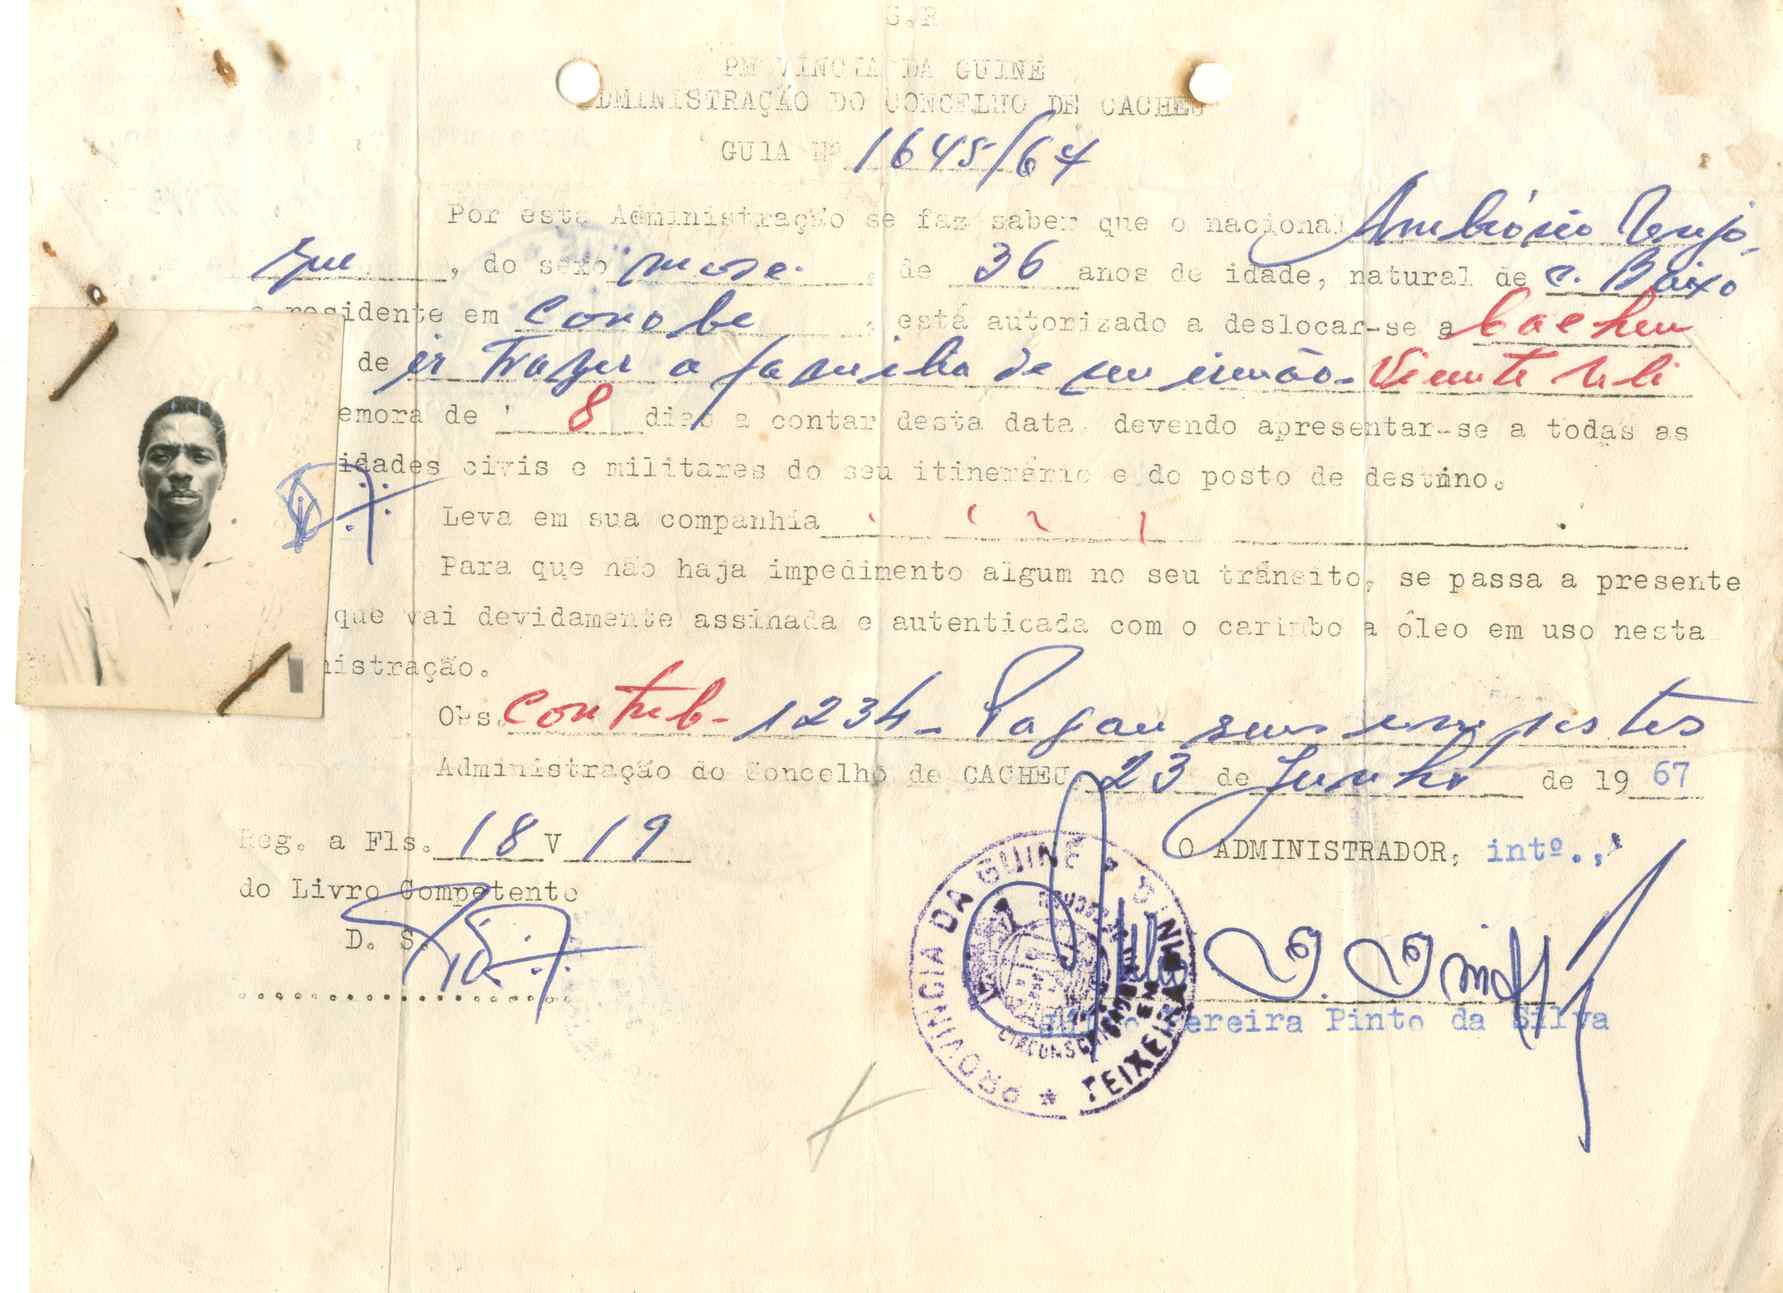 S.R
PROVINCIA DA GUINÉ
ADMINISTRAÇÃO DO CONCELHO DE CACHEU
GUIA Nº 1645/67
Por esta Administração se faz saber que o nacional Ambrósio
, do sexo masc. , de 36 anos de idade, natural de C. Baixo
e residente em Corobe , está autorizado a deslocar-se a Cacheu
de ir trazer a família de seu irmão - Vicente
emora de 8 dias a contar desta data, devendo apresentar-se a todas as
idades civis e militares do seu itinerário e do posto de destino.
Leva em sua companhia
Para que não haja impedimento algum no seu trânsito, se passa a presente
que vai devidamente assinada e autenticada com o carimbo a óleo em uso nesta
nistração.
Obs. Contrib - 1234 - Pagou seus impostos
Administração do Concelho de CACHEU 23 de Junho de 1967
Reg. a Fls. 18 V 19
O ADMINISTRADOR, intº.,
do Livro Competente
D. S.
PROVINCIA DA GUINÉ
TEIXEIRA
Pereira Pinto da Silva